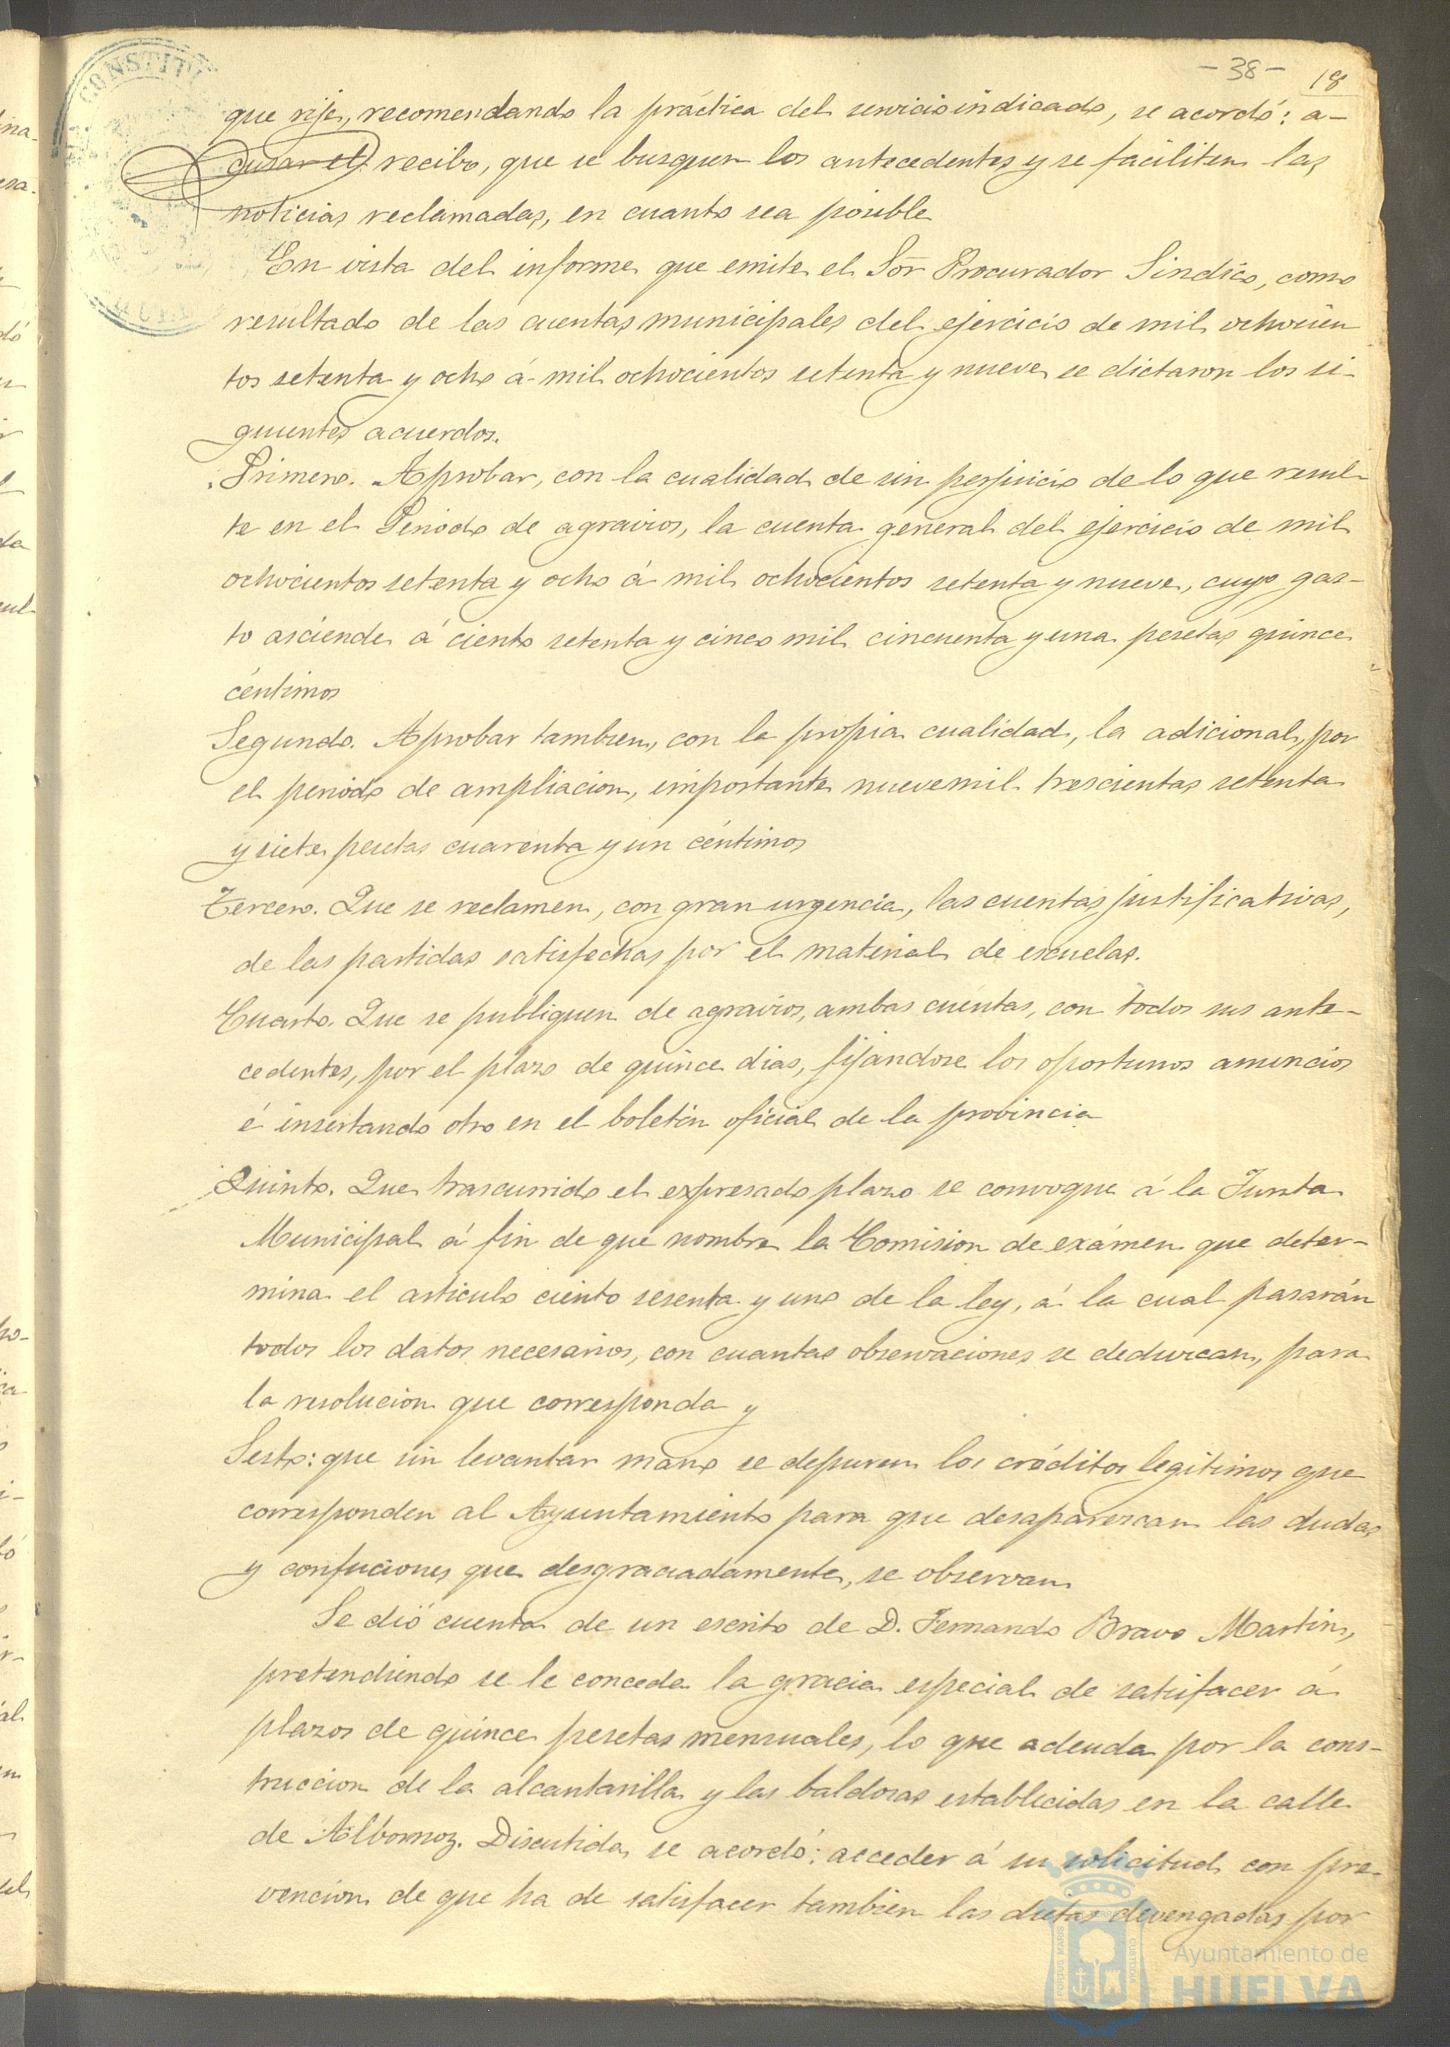 - 38 - 18
CONSTITU
que rije, recomendando la práctica del servicio indicado, se acordó: a-
cusar el recibo, que se busquen los antecedentes y se faciliten las
noticias reclamadas, en cuanto sea posible
En vista del informe que emite el Sor Procurador Sindico, como
resultado de las cuentas municipales del ejercicio de mil ochocien
tos setenta y ocho á mil ochocientos setenta y nueve se dictaron los si-
guientes acuerdos.
Primero. Aprobar, con la cualidad de sin perjuicio de lo que resul-
te en el Periodo de agravios, la cuenta general del ejercicio de mil
ochocientos setenta y ocho á mil ochocientos setenta y nueve, cuyo gas-
to asciende á ciento setenta y cinco mil cincuenta y una pesetas quince
céntimos
Segundo. Aprobar tambien, con la propia cualidad, la adicional, por
el periodo de ampliacion, importante nuevemil trescientas setenta
y siete pesetas cuarenta y un céntimos
Tercero. Que se reclamen, con gran urgencia, las cuentas justificativas,
de las partidas satisfechas por el material de escuelas.
Cuarto. Que se publiquen de agravios, ambas cuentas, con todos sus ante-
cedentes, por el plazo de quince dias, fijándose los oportunos anuncios
é insertando otro en el boletin oficial de la provincia
Quinto. Que trascurrido el expresado plazo se convoque á la Junta
Municipal á fin de que nombre la Comision de exámen que deter-
mina el articulo ciento sesenta y uno de la ley, á la cual pasarán
todos los datos necesarios, con cuantas observaciones se deduzcan, para
la resolucion que corresponda y
Sesto: que sin levantar mano se depuren los créditos legitimos que
corresponden al Ayuntamiento para que desaparezcan las dudas
y confuciones que desgraciadamente, se observan
Se dió cuenta de un escrito de D. Fernando Bravo Martin,
pretendiendo se le conceda la gracia especial de satisfacer á
plazos de quince pesetas mensuales, lo que adeuda por la cons-
truccion de la alcantarilla y las baldosas establecidas en la calle
de Albornoz. Discutida, se acordó: acceder á su solicitud con pre-
vencion de que ha de satisfacer tambien las dietas devengadas por
Ayuntamiento de
HUELVA